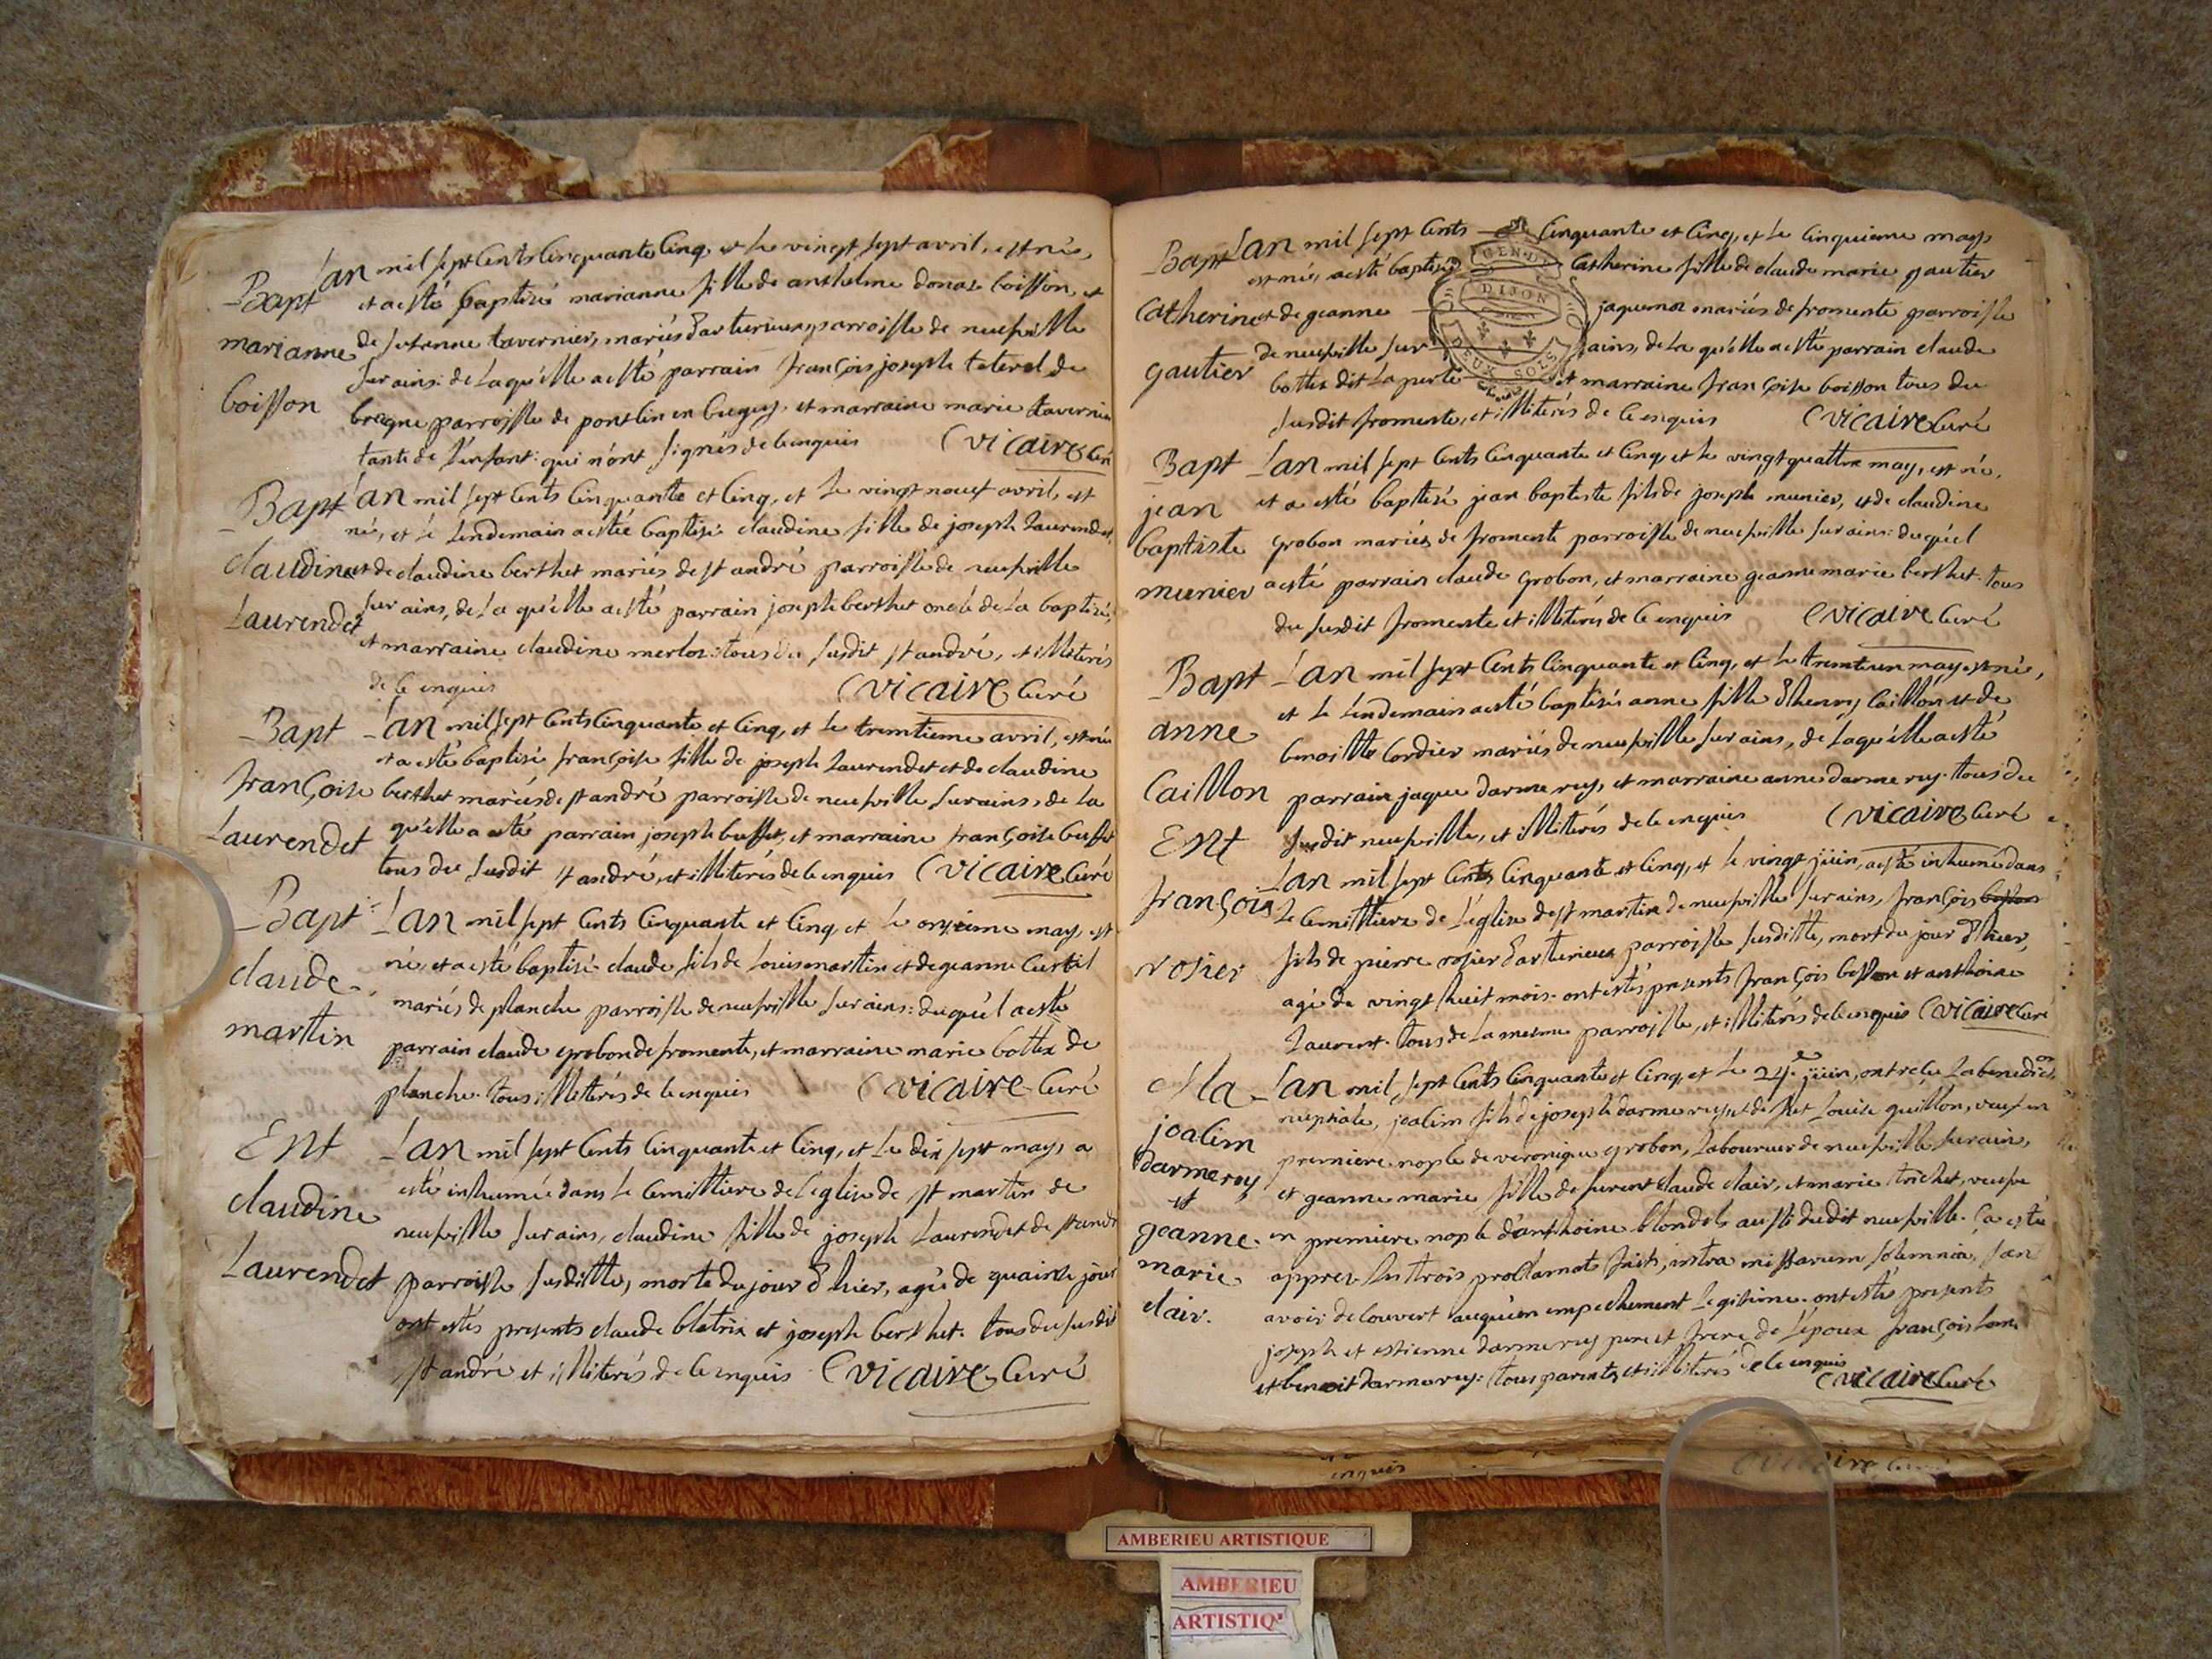 Bapt
marianne
boisson
Lan mil sept Cents Cinquante Cinq, et Le vingt sept avril, est née,
et a esté baptisé marianne fille de anthelme donat boisson, et
de suzanne tavernier, mariés parroisse de neufville
sur ains: de laquélle a esté parrain françois joseph
parroisse de en bugey, et marraine marie tavernier
tante de l'enfant: qui n'ont signés de ce enquis CVICAIRE Curé
Bapt
claudine
Laurendet
Lan mil sept Cents Cinquante et Cinq, et Le vingt neuf avril, est
né, et le Lendemain a estée baptisé claudine fille de joseph Laurendet,
et de claudine berthet mariés de st andré parroisse de neufville
sur ains, de La qu'élle a esté parrain joseph berthet oncle de La baptisé,
et marraine claudine merloz: tous du susdit st andré, et illiterés
de ce enquis CVICAIRE Curé
Bapt
françoise
Laurendet
Lan mil sept Cents Cinquante et Cinq, et Le trentieme avril, est née
et a esté baptisé françoise fille de joseph Laurendet et de claudine
berthet mariés de st andré parroisse de neufville sur ains, de La
qu'élle a esté parrain joseph buffet, et marraine françoise buffet
tous du susdit st andré, et illiterés de ce enquis CVICAIRE Curé
Bapt
claude
martin
Lan mil sept Cents Cinquante et Cinq, et Le onzieme may, est
né, et a esté baptisé claude fils de Louis martin et de jeanne Curtil
mariés de planche parroisse de neufville sur ains: du qu'él a esté
parrain claude grobon de fromente, et marraine marie bottex de
planche. tous illiterés de ce enquis CVICAIRE Curé
Ent
claudine
Laurendet
Lan mil sept Cents Cinquante et Cinq, et Le dix sept may, a
esté inhumée dans Le Cemittiere de L'eglise de st martin de
neufville sur ains, claudine fille de joseph Laurendet de st andré
parroisse susditte, morte du jour d'hier, agé de quainze jour
ont estés presents claude blatrix et joseph berthet. tous du susdit
st andré et illiterés de ce enquis CVICAIRE Curé
Bapt
Catherine
gautier
Lan mil sept Cents Cinquante et Cinq, et Le Cinquieme may
est né, a esté baptisé Catherine fille de claude marie gautier
et de jeanne jaquemoz mariés de fromente parroisse
de neufville sur ains, de La qu'élle a esté parrain claude
bottex dit La perle et marraine françoise boisson tous du
susdit fromente, et illiterés de ce enquis CVICAIRE Curé
GEN. DE
DIJON
DEUX SOLS
Bapt
jean
baptiste
munier
Lan mil sept Cents Cinquante et Cinq, et Le vingt quattre may, est né,
et a esté baptisé jean baptiste fils de joseph munier, et de claudine
grobon mariés de fromente parroisse de neufville sur ains: du qu'él
a esté parrain claude grobon, et marraine jeanne marie berthet. tous
du susdit fromente et illiterés de ce enquis CVICAIRE Curé
Bapt
anne
Caillon
Lan mil sept Cents Cinquante et Cinq, et Le trente un may, est née,
et Le Lendemain a esté baptisé anne fille d'henry Caillon et de
benoitte Cordier mariés de neufville sur ains, de Laqu'élle a esté
parrain jaque darmerey, et marraine anne darmerey. tous du
susdit neufville, et illiterés de ce enquis CVICAIRE Curé
Ent
françois
rosier
Lan mil sept Cents Cinquante et Cinq, et Le vingt juin, a esté inhumé dans
Le Cemittiere de L'église de st martin de neufville sur ains, françois
fils de pierre rosier parroisse susditte, mort du jour d'hier,
agé de vingt huit mois. ont estés presents françois et anthoine
Laurent. tous de La mesme parroisse, et illiterés de ce enquis CVICAIRE Curé
Ma
joacim
darmerey
et
jeanne
marie
clair.
Lan mil sept Cents Cinquante et Cinq, et Le 24e juin, ont reçu La benediction
nuptiale, joacim fils de joseph darmerey, et de Louise guillon, veuf en
premiere nopce de veronique grobon, Laboureur de neufville sur ain,
et jeanne marie fille de claude clair, et marie trichet, veufve
en premiere nopce d'anthoine blondel, aussi dudit neufville. Ca esté
apprez Les trois proclamats faits, intra missarum solemnia, san
avoir decouvert auqu'un empechement Legitime. ont esté presents
joseph et estienne darmerey pere et frere de L'epoux françois
et benoit darmerey: tous parents, et illiterés de ce enquis CVICAIRE Curé
enquis
AMBERIEU ARTISTIQUE
AMBERIEU
ARTISTIQ